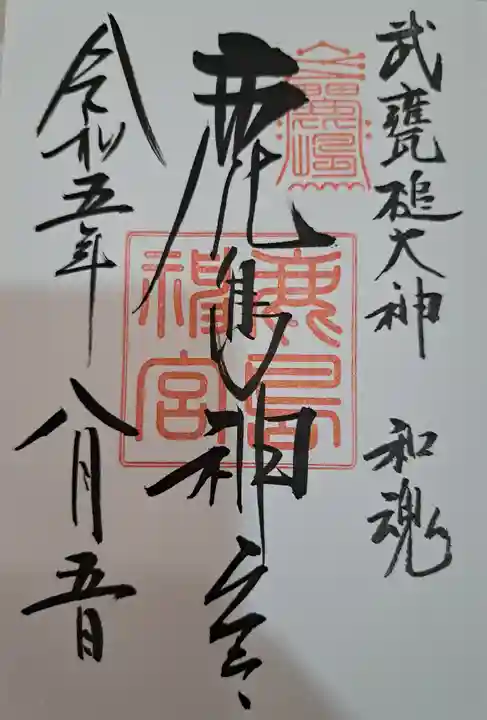 武甕槌大神 和魂
鹿島神宮
令和五年 八月五日
鹿島
神宮